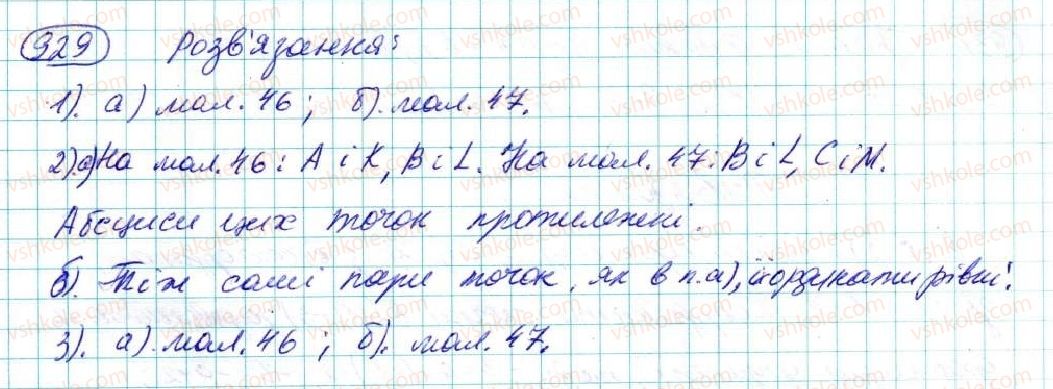 929 Розв'язання:
1). а) мал. 46; б). мал. 47.
2) а) На мал. 46: A і K, B і L. На мал. 47: B і L, C і M.
Абсциси цих точок протилежні.
б). Ті ж самі пари точок, як в п. а), їх ординати рівні.
3). а). мал. 46; б). мал. 47.